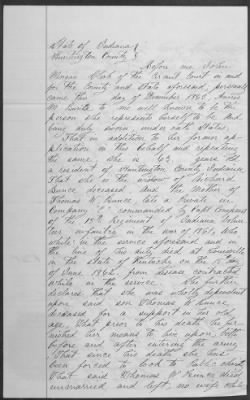 State of Indiana
Huntington County
Before me John
Clerk of the Circuit Court in and
for the County and State aforesaid, personally
came this day of December 1863, 
W. to me well known to be the
person she represents herself to be and
being duly sworn, under oath States
That in addition to her former ap
plication in this behalf and repeating
the same, she is 63 years old
a resident of Huntington County, Indiana
That she is the widow of Richard
Bunce deceased and the Mother
of Thomas W. Bunce, late a Private in
Company commanded by Capt
of the 13th Regiment of Indiana Volun
teer infantry in the war of 1861, who
while in the service aforesaid and in
the line of his duty died at Louisville
in the State of Kentucky on the day
of June 1862, from disease contracted
while in the service. She further
declares that she was wholly dependent
upon said son Thomas W. Bunce,
deceased for a support in her old
age. That prior to his death he fur
nished her means to live upon, both
before and after entering the army.
That since his death she has
been forced to look to public charity
That said Thomas W. Bunce died
unmarried and left no wife, child